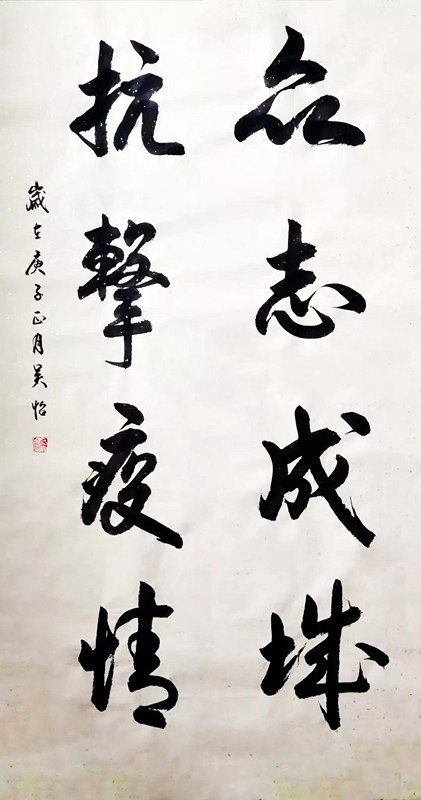 众志成城
抗擊疫情
歲在庚子正月吴怡